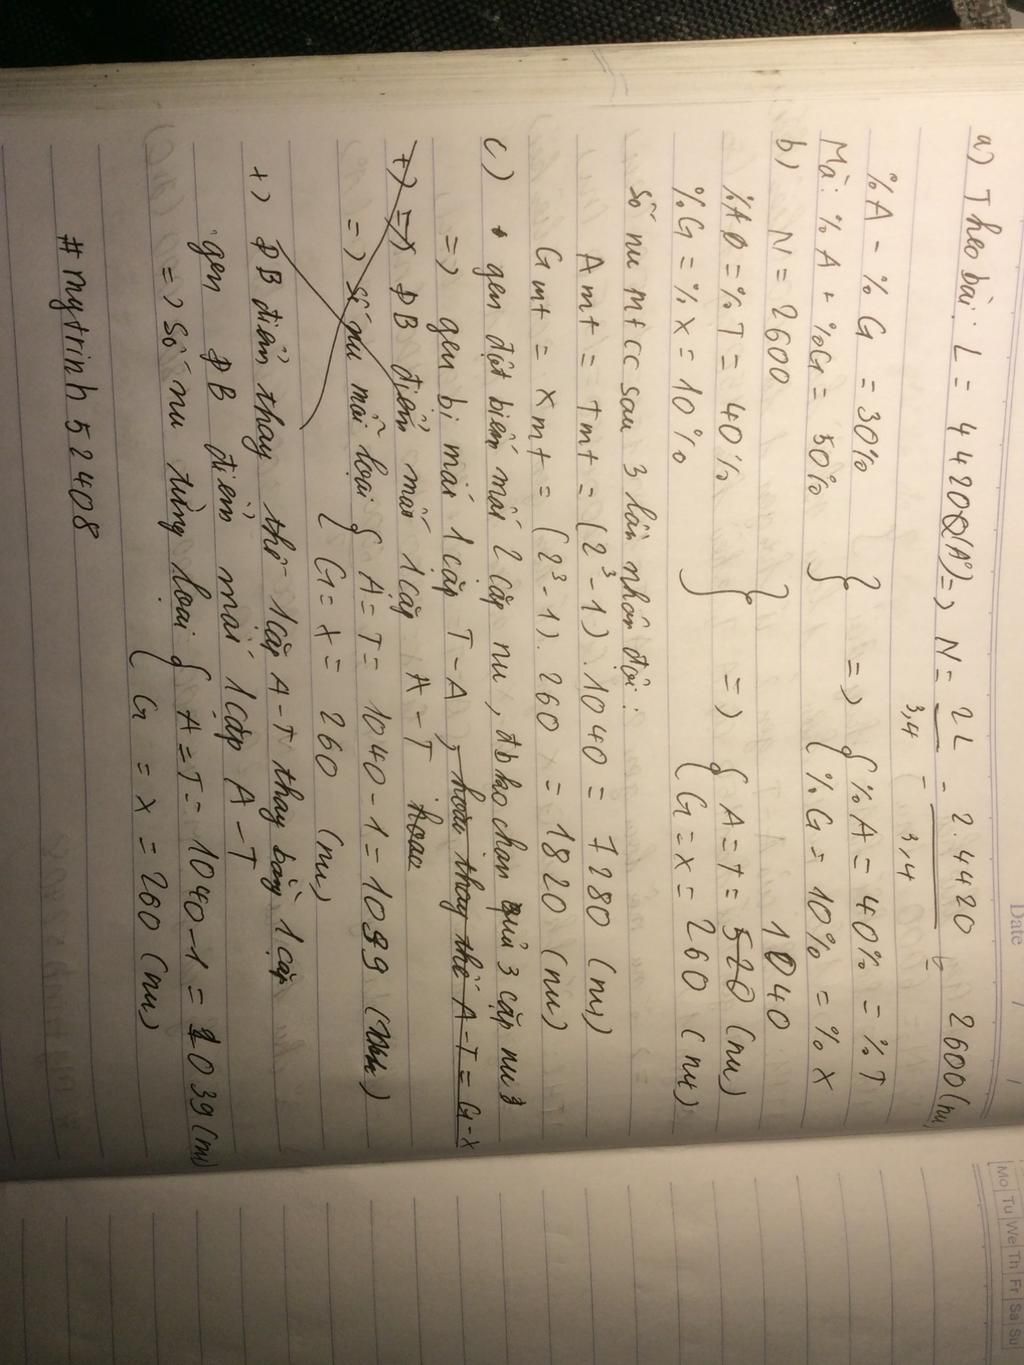 Date / /
Mo Tu We Th Fr Sa Su
a) Theo bài: L = 4420 (A°) => N = 2L/3,4 = 2.4420/3,4 = 2600 (nu)
%A - %G = 30%
Mà: %A + %G = 50% } => { %A = 40% = %T
{ %G = 10% = %X
b) N = 2600
%A = %T = 40%
%G = %X = 10% } => { A = T = 520 1040 (nu)
{ G = X = 260 (nu)
Số nu mtcc sau 3 lần nhân đôi:
Amt = Tmt = (2³-1).1040 = 7280 (nu)
Gmt = Xmt = (2³-1).260 = 1820 (nu)
c) gen đột biến mất 2 cặp nu, đb ko chạm quá 3 cặp nu
=> gen bị mất 1 cặp T-A, hoặc thay thế A-T = G-X
+) => ĐB điểm mất 1 cặp A-T hoặc
=> số nu mỗi loại { A = T = 1040 - 1 = 1039 (nu)
{ G = X = 260 (nu)
+) ĐB điểm thay thế 1 cặp A-T thay bằng 1 cặp
gen ĐB điểm mất 1 cặp A-T
=> số nu từng loại { A = T = 1040 - 1 = 1039 (nu)
{ G = X = 260 (nu)
#mytrinh52408